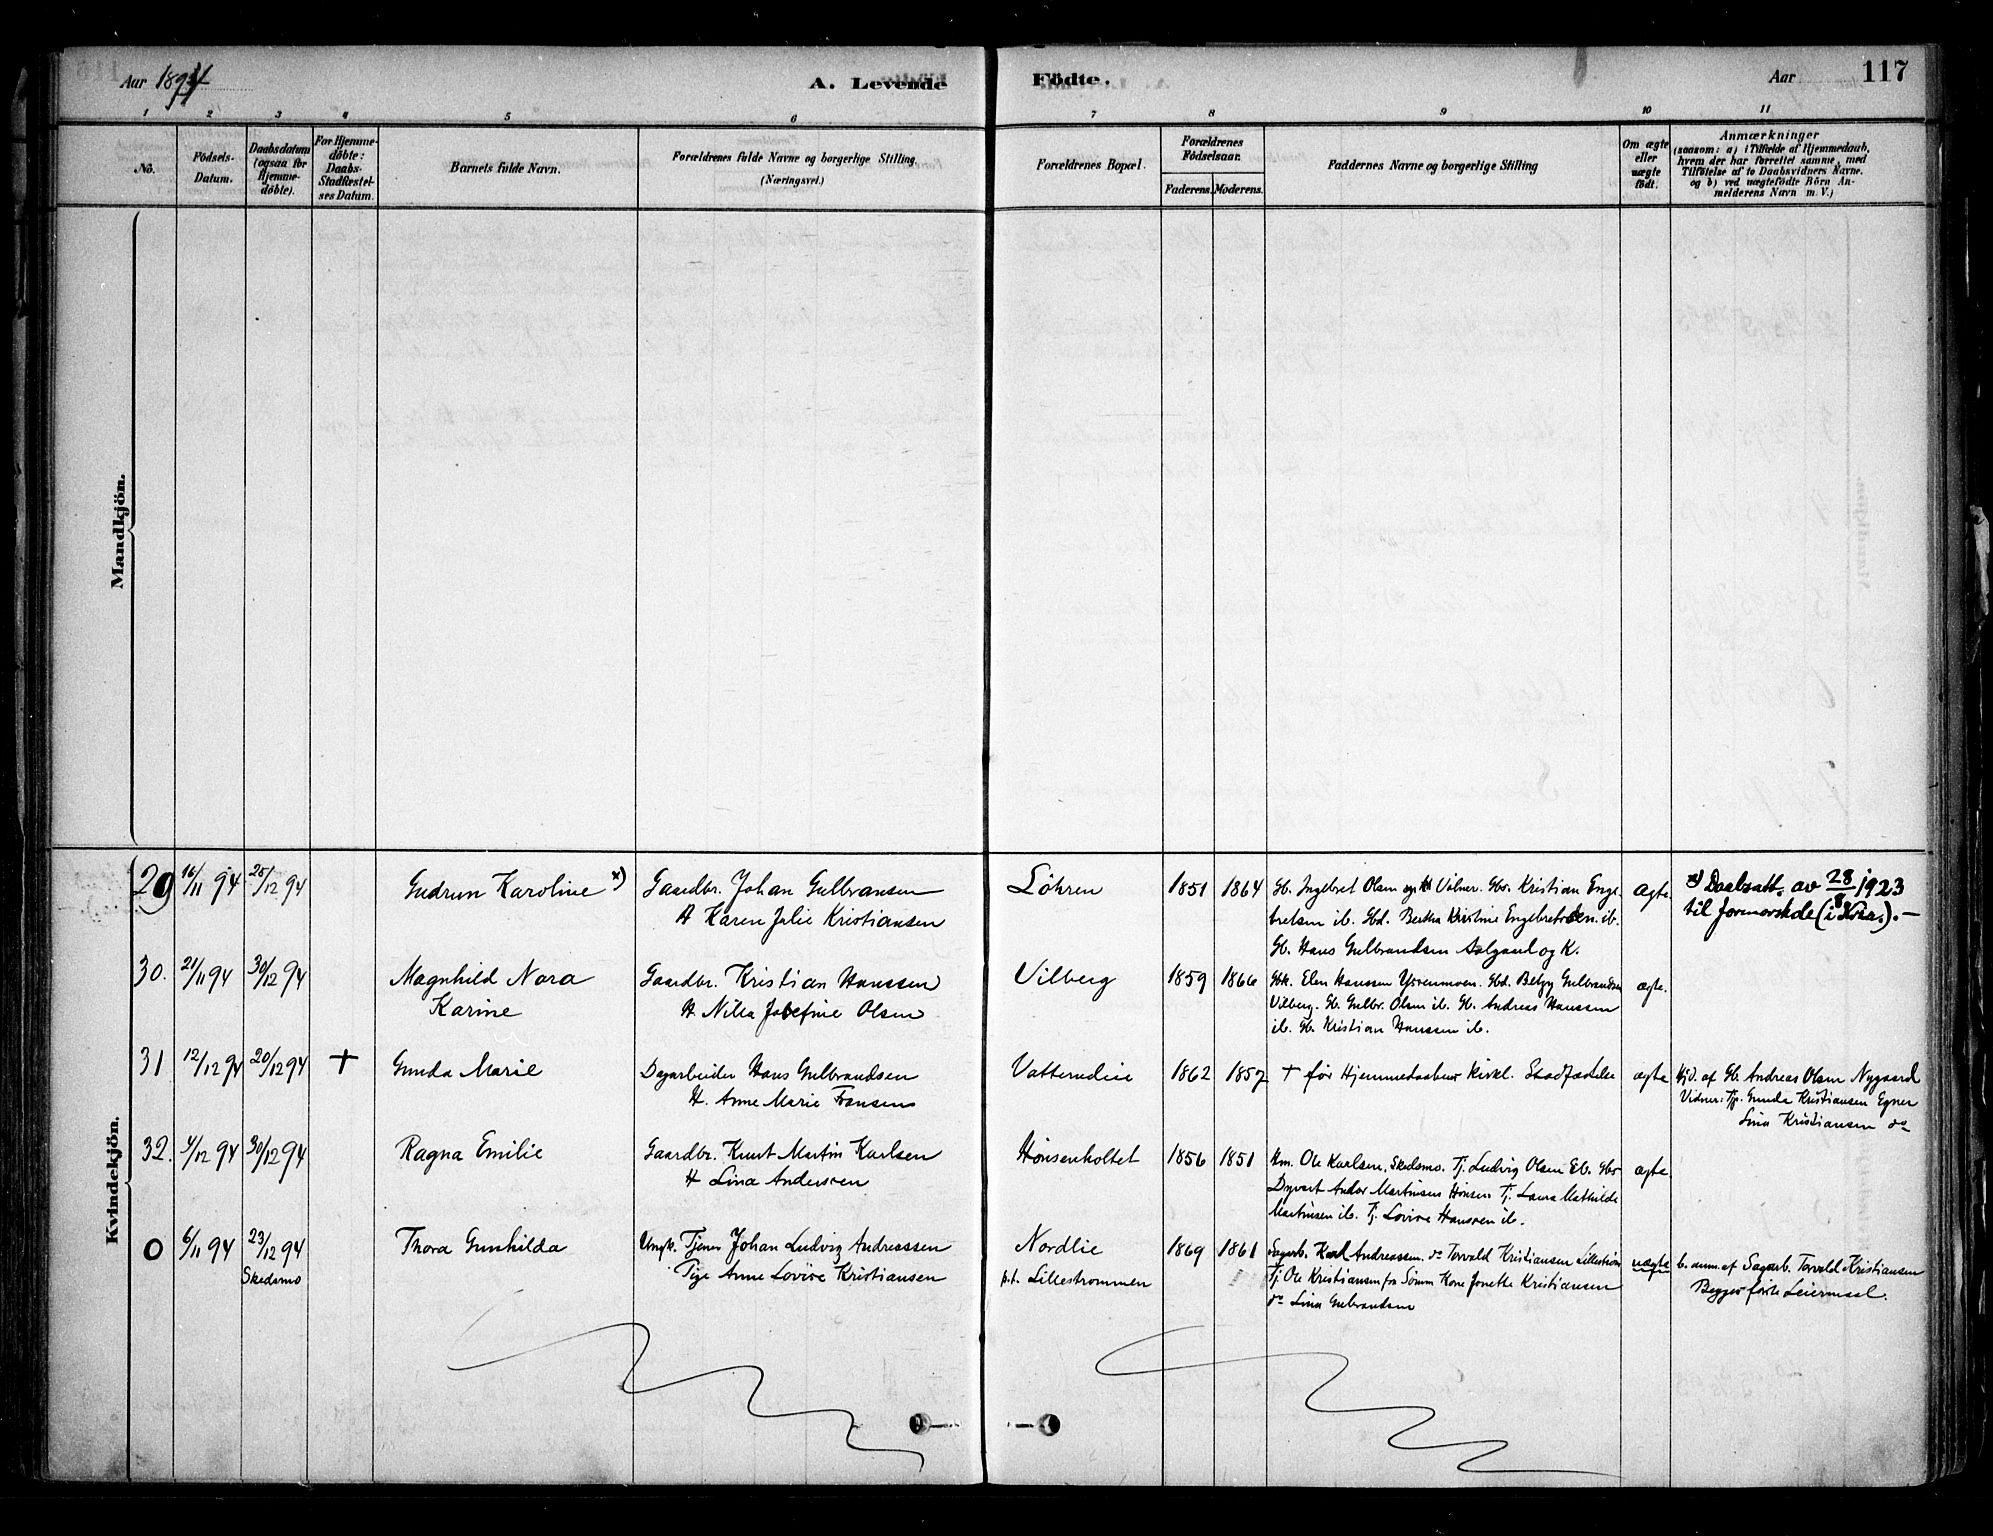 Aar 1894
A. Levende
Födte.
Aar
117
1 2 3 4 5 6 7 8 9 10 11
No.
Födsels-
Datum.
Daabsdatum
(ogsaa for
Hjemme-
döbte).
For Hjemme-
döbte:
Daabs-
Stadfæstel-
ses Datum.
Barnets fulde Navn.
Forældrenes fulde Navne og borgerlige Stilling.
(Næringsvei.)
Forældrenes Bopæl.
Forældrenes
Födselsaar.
Faderens. Moderens.
Faddernes Navne og borgerlige Stilling
Om ægte
eller
uægte
födt.
Anmærkninger
(saasom: a) i Tilfælde af Hjemmedaab,
hvem der har forrettet samme, med
Tilföielse af to Daabsvidners Navne.
og b) ved uægtefödte Börn An-
melderens Navn m. V.)
Mandkjön.
Kvindekjön.
29 16/11 94 25/12 94 Gudrun Karoline x) Gaardbr. Johan Gulbransen Löhren 1851 1864 Gb. Ingebret Olsen Vilner. Gbs. Kristian Enge- ægte x) Daabsatt. av 28/8 1923
H Karen Julie Kristiansen bretsen ib. Gbd. Bertha Kristine Engebretsen ib. til formorskde (i Kra.). —
Gb. Hans Gulbrandsen Aalgaard og K.
30. 21/11 94 30/12 94 Magnhild Nora Gaardbr. Kristian Hanssen Vilberg 1859 1866 Gbk. Elen Hanssen Gbd. Gulbrandsen ægte.
Karine H. Nilla Josefine Olsen Vilberg. Gb. Gulbr. Olsen ib. Gb. Andreas Hanssen
ib. Gb. Kristian Hanssen ib.
31 12/12 94 20/12 94 + Gunda Marie Dagarbeider Hans Gulbrandsen Vatterudeie 1862 1857 + før Hjemmedaabens kirkl. Stadfæstelse ægte Hjd. af Gb. Andreas Olsen Nygaard
H. Anne Marie Fransens Vidner: Tjp. Gunda Kristiansen Egner
Lina Kristiansen do
32. 4/12 94 30/12 94 Ragna Emilie Gaardbr. Knut Martin Karlsen Hønsenholtet 1856 1851 Hm. Ole Karlsen, Skedsmo. Tj. Ludvig Olsen Eb. Gbs ægte
H Lina Andersen Dyvart Andor Martinsen Hønsen Tj. Laura Mathilde
Martinsen ib. Tj. Lovise Hansen ib.
0 6/11 94 23/12 94 Thora Gunhilda Ungk. Tjener Johan Ludvig Andreassen Nordlie 1869 1861 Sagarb. Karl Andreassen. do Torvald Kristiansen Lillestrøm uægte b. anm. af Sagarb. Torvald Kristiansen
Skedsmo Pige Anne Lovise Kristiansen p.t. Lillestrommen Tj. Ole Kristiansen fra Sørum Kone Jonette Kristiansen Begges første Leiermaal.
do Lina Gulbrandsen